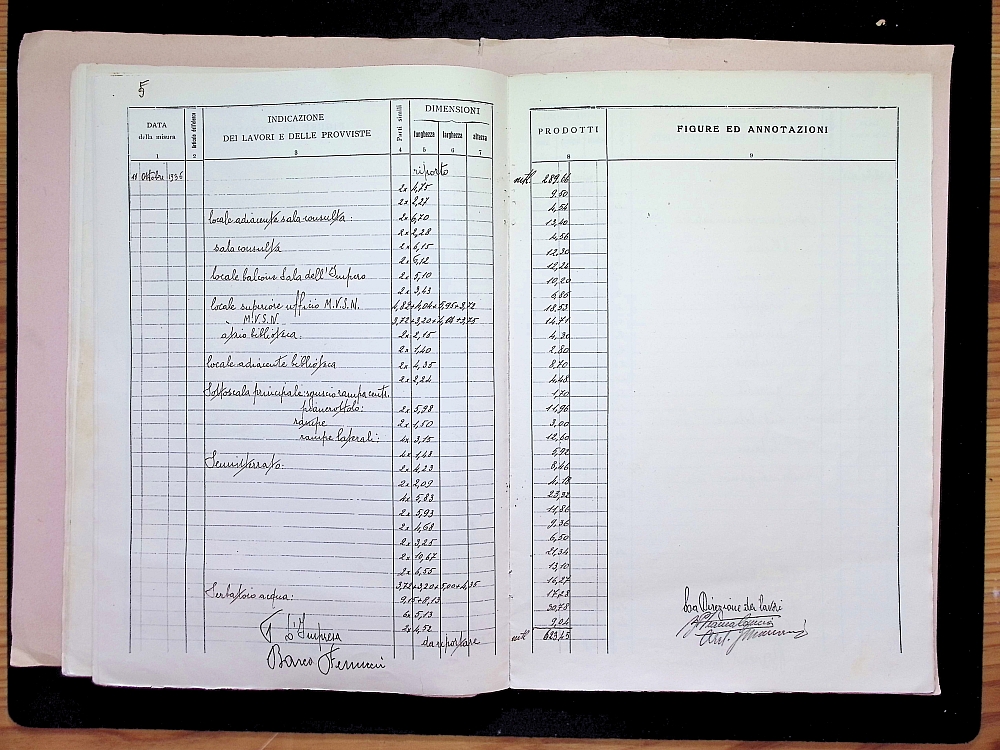 5
DATA della misura
Articolo dell'elenco
INDICAZIONE
DEI LAVORI E DELLE PROVVISTE
Parti simili
DIMENSIONI
lunghezza larghezza altezza
PRODOTTI
FIGURE ED ANNOTAZIONI
1 2 3 4 5 6 7 8 9
11 Ottobre 1936 riporto mtl. 289,66
2x 4,75 9,50
2x 2,27 4,54
locale adiacente sala consulta: 2x 6,70 13,40
2x 2,28 4,56
sala consulta 2x 6,15 12,30
2x 6,12 12,24
locale balcone Sala dell'Impero 2x 5,10 10,20
2x 3,43 6,86
locale superiore ufficio M.V.S.N. 4,82+4,04+5,95+3,72 18,53
M.V.S.N. 3,72+3,20+4,04+3,75 14,71
atrio biblioteca: 2x 2,15 4,30
2x 1,40 2,80
locale adiacente biblioteca 2x 4,35 8,70
2x 2,24 4,48
Sottoscala principale: sguscio rampa centr. 1,70
pianerottolo: 2x 5,98 11,96
rampe 2x 1,50 3,00
rampe laterali: 4x 3,15 12,60
4x 1,48 5,92
Seminterrato: 2x 4,23 8,46
2x 2,09 4,18
4x 5,83 23,32
2x 5,93 11,86
2x 4,68 9,36
2x 3,25 6,50
2x 10,67 21,34
2x 6,55 13,10
3,72+3,20+5,00+4,35 16,27
Serbatoio acqua: 9,15+8,13 17,28
6x 5,13 30,78
2x 4,52 9,04
da riportare mtl. 623,45
L'Impresa
Barco Ferruccio
La Direzione dei lavori